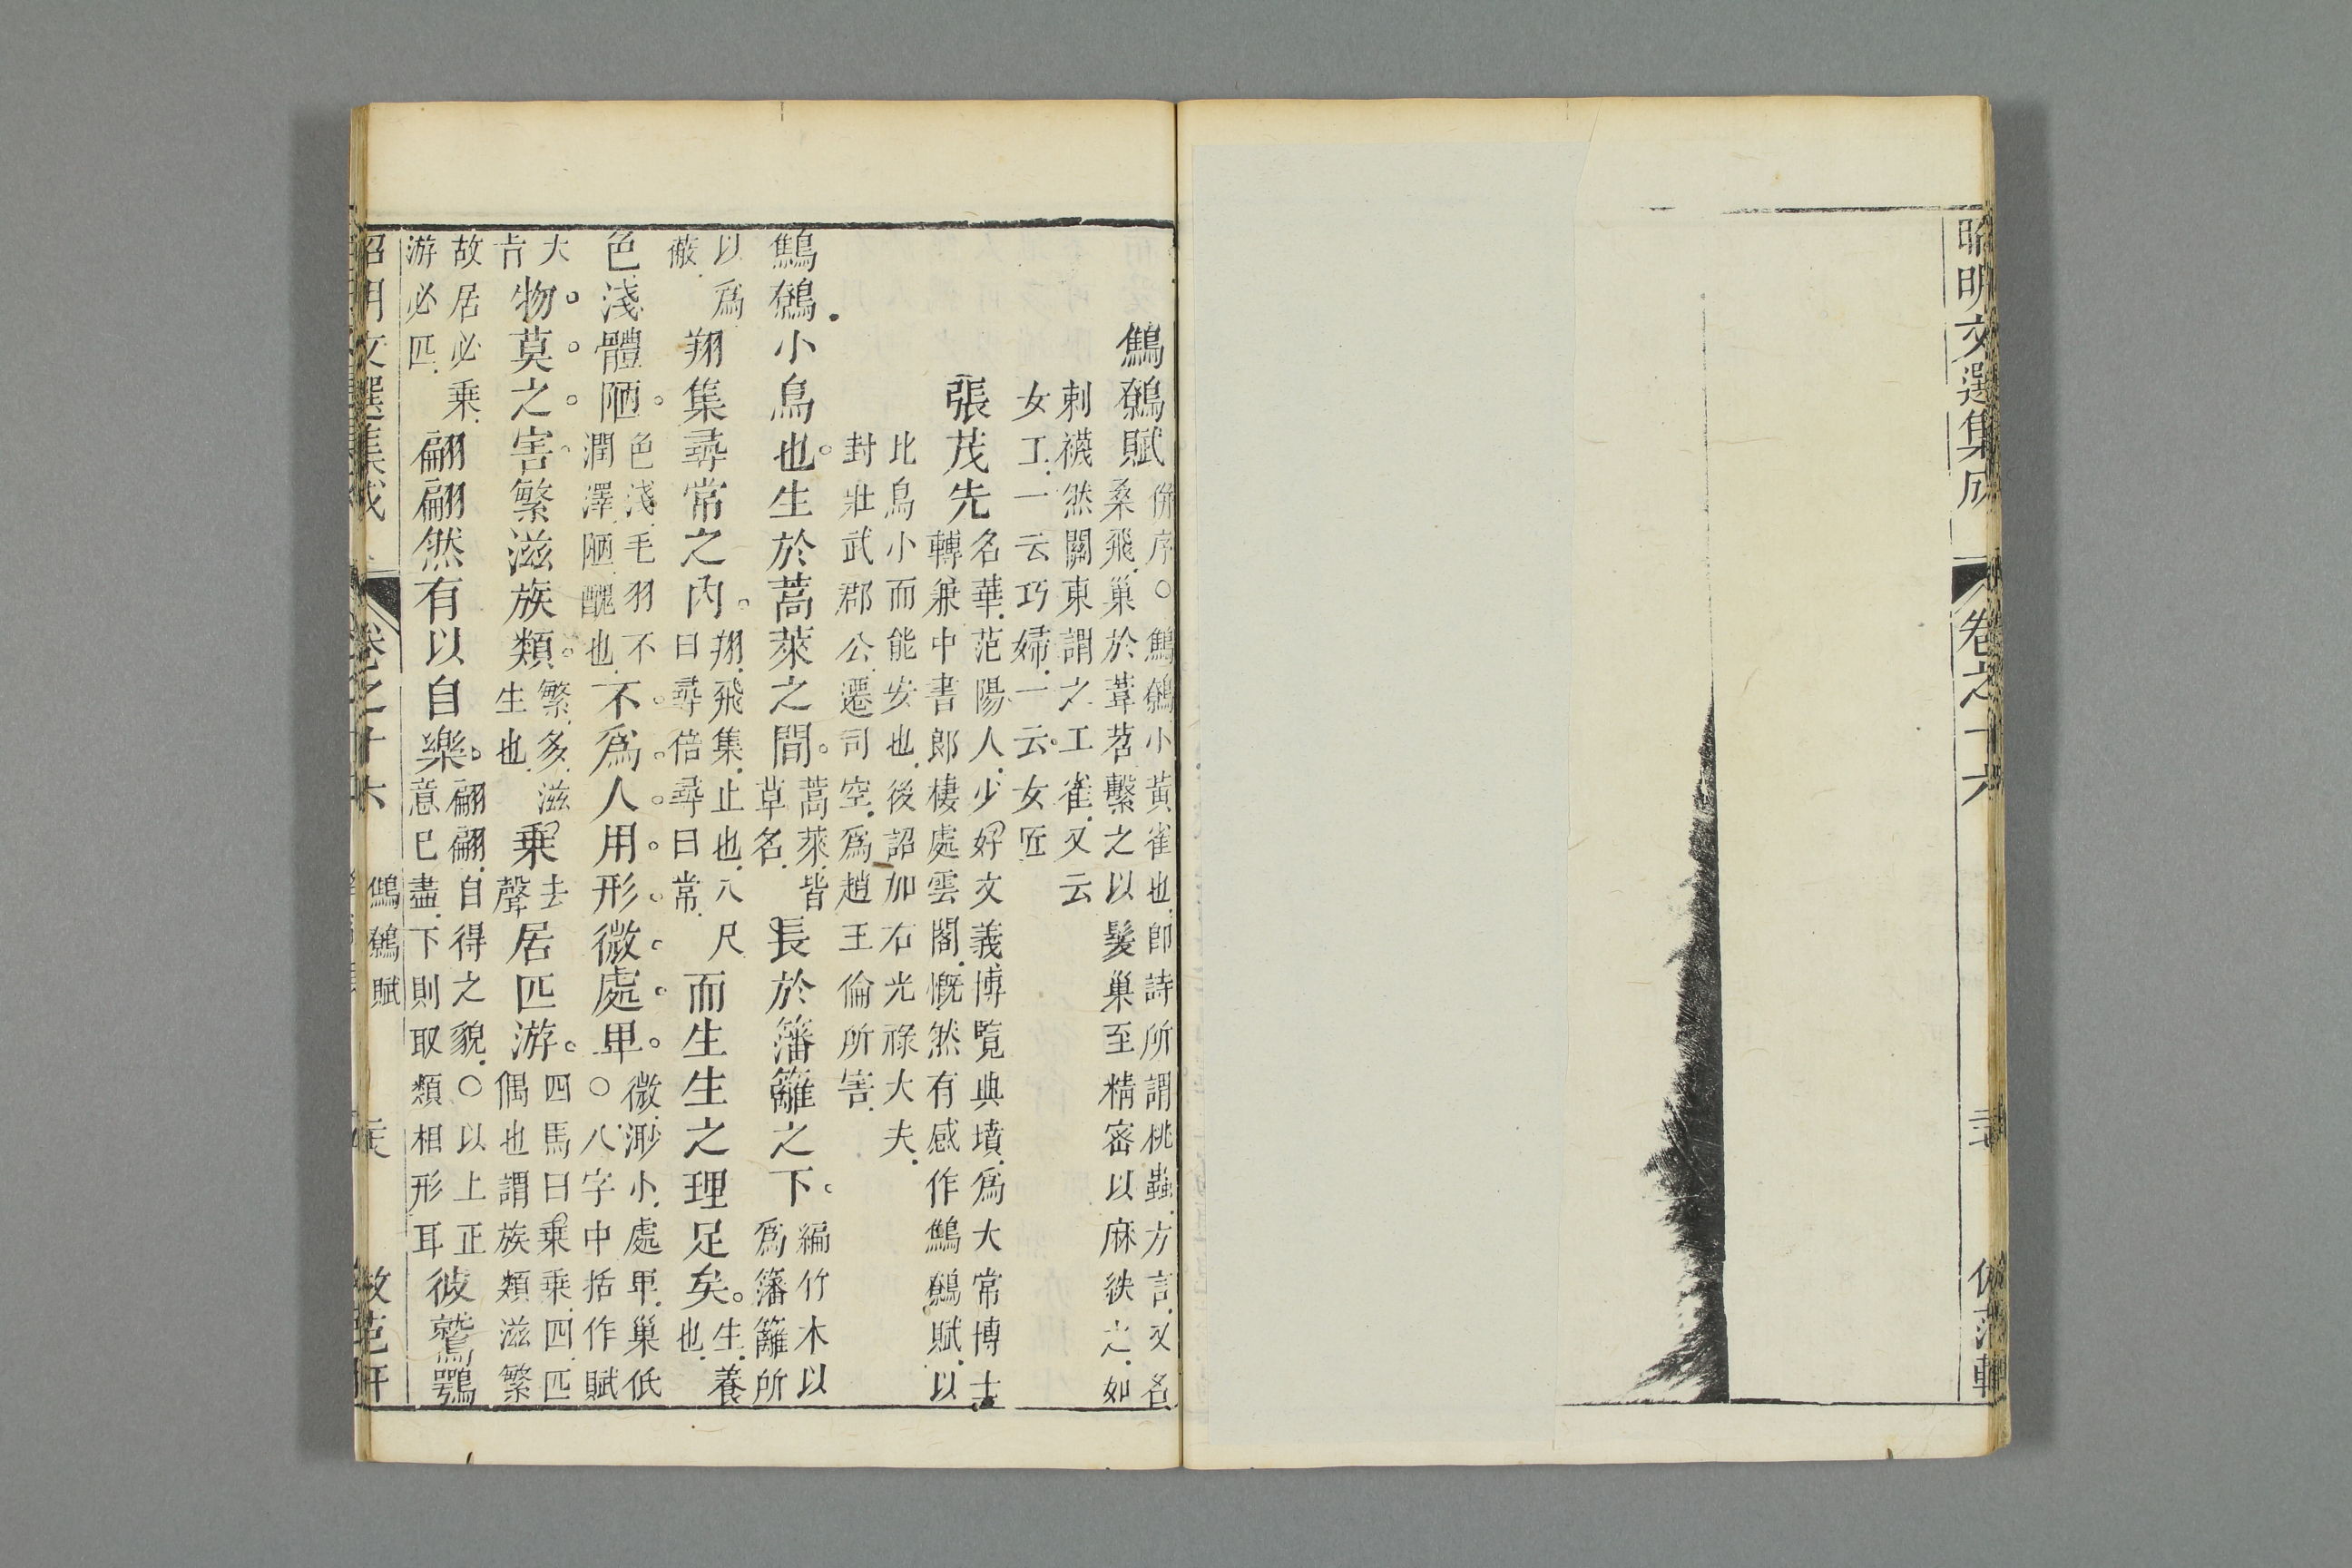 昭明文選集成
卷之十六
鷦鷯賦
併序○鷦鷯小黃雀也即詩所謂桃蟲方言又名
桑飛巢於葦苕繫之以髮巢至精密以麻紩之如
刺襪然關東謂之工雀又云
女工一云巧婦一云女匠
張茂先
名華范陽人少好文義博覧典墳爲大常博士
轉兼中書郎棲處雲閣慨然有感作鷦鷯賦以
比鳥小而能安也後詔加右光祿大夫
封壯武郡公遷司空爲趙王倫所害
鷦鷯小鳥也生於蒿萊之間
蒿萊皆
草名
長於籓籬之下
編竹木以
爲籓籬所
以爲
蔽
翔集尋常之內
翔飛集止也八尺
曰尋倍尋曰常
而生生之理足矣
生養
也
色淺體陋
色淺毛羽不
潤澤陋醜也
不爲人用形微處卑
微渺小處卑巢低
○八字中括作賦
大
旨
物莫之害繁滋族類
繁多滋
生也
乗
去
聲
居匹游
四馬曰乗乗四匹
偶也謂族類滋繁
故居必乗
游必匹
翩翩然有以自樂
翩翩自得之貌○以上正
意已盡下則取類相形耳
彼鷲鶚
昭明文選集成
卷之十六
鷦鷯賦